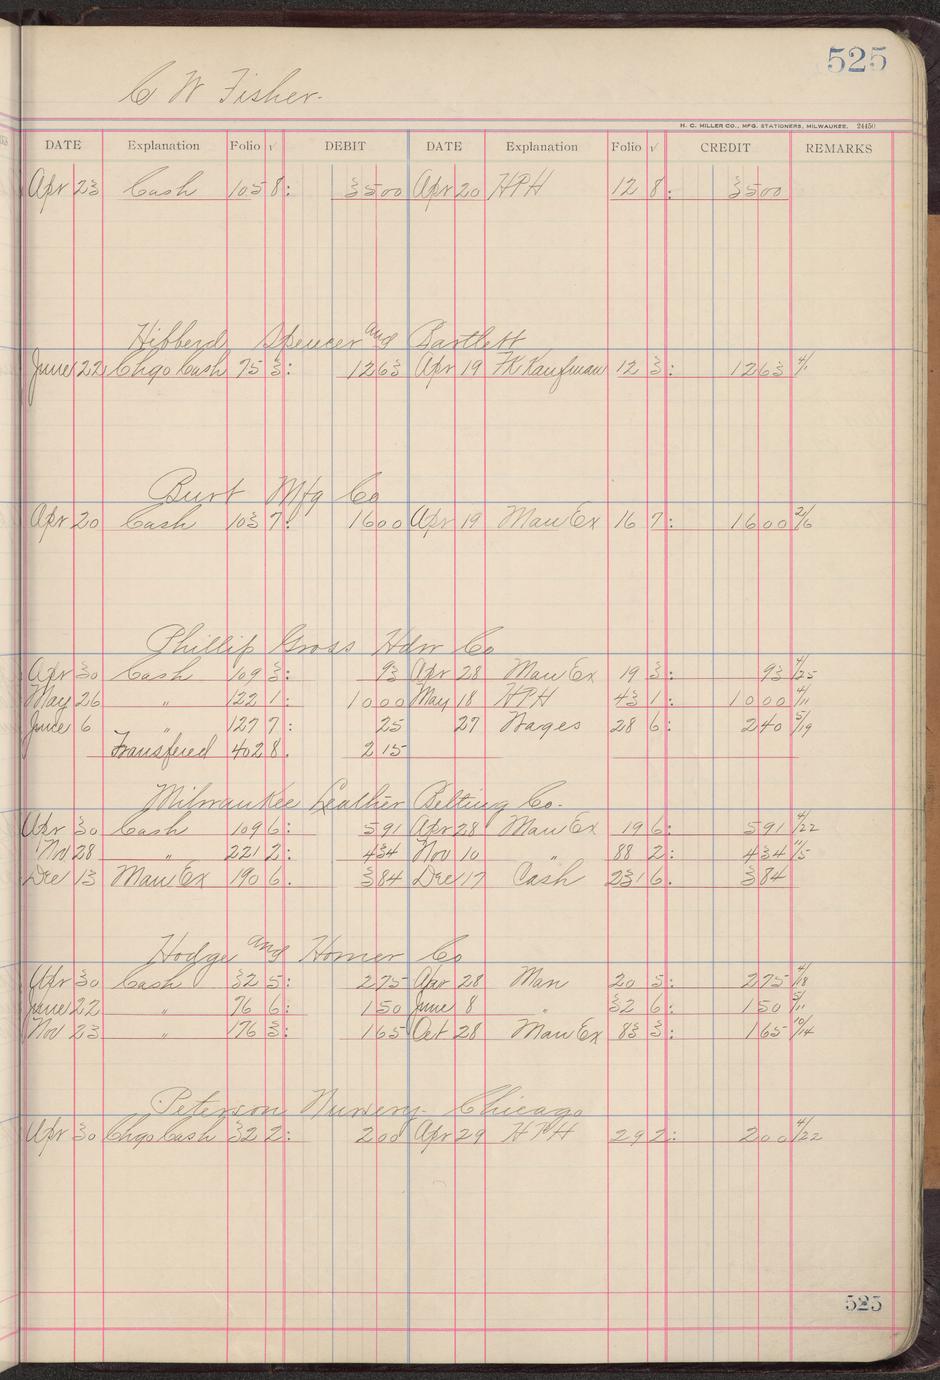 525
C W Fisher.
H. C. MILLER CO., MFG. STATIONERS, MILWAUKEE. 24450
DATE Explanation Folio √ DEBIT DATE Explanation Folio √ CREDIT REMARKS
Apr 23 Cash 105 8: 3500 Apr 20 HPH 12 8: 3500
Hibberd Spencer and Bartlett
June 22 Chgo Cash 75 3: 1263 Apr 19 FK Kaufman 12 3: 1263 4/1
Burt Mfg Co
Apr 20 Cash 103 7: 1600 Apr 19 Man Ex 16 7: 1600 2/6
Phillip Gross Hdw Co
Apr 30 Cash 109 3: 93 Apr 28 Man Ex 19 3: 93 4/25
May 26 " 122 1: 1000 May 18 HPH 43 1: 1000 4/11
June 6 " 127 7: 25 27 Wages 28 6: 240 5/19
Transfered 402 8. 215
Milwaukee Leather Belting Co.
Apr 30 Cash 109 6: 591 Apr 28 Man Ex 19 6: 591 4/22
Nov 28 " 221 2: 434 Nov 10 " 88 2: 434 11/5
Dec 13 Man Ex 190 6. 384 Dec 17 Cash 231 6. 384
Hodge and Homer Co
Apr 30 Cash 32 5: 275 Apr 28 Man 20 5: 275 4/18
June 22 " 76 6: 150 June 8 " 32 6: 150 5/11
Nov 23 " 176 3: 165 Oct 28 Man Ex 83 3: 165 10/14
Peterson Nursery- Chicago
Apr 30 Chgo Cash 32 2: 200 Apr 29 HPH 29 2: 200 4/22
525